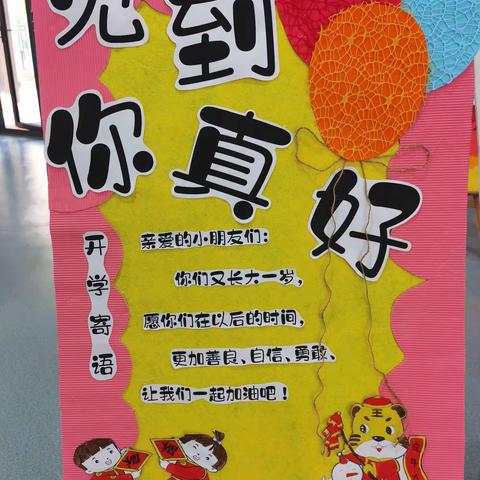 见到
你真好
开学寄语
亲爱的小朋友们：
你们又长大一岁，
愿你们在以后的时间，
更加善良、自信、勇敢、
让我们一起加油吧！
王